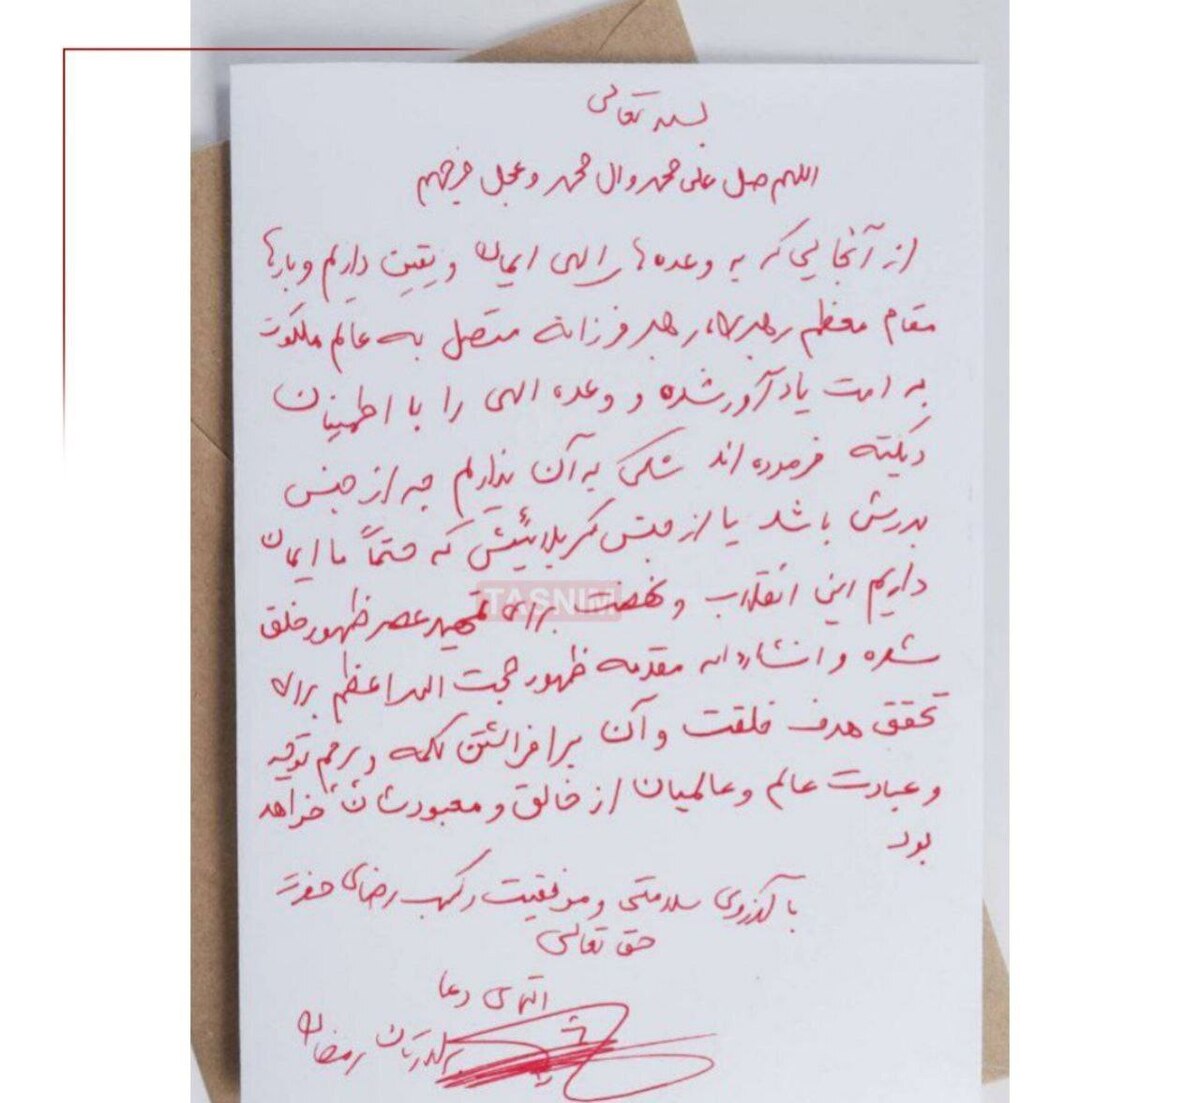 بسمه تعالی
اللهم صل علی محمد و ال محمد و عجل فرجهم
از آنجایی که به وعده های الهی ایمان و یقین داریم و بارها
مقام معظم رهبری، رهبر فرزانه متصل به عالم ملکوت
به امت یادآور شده و وعده الهی را با اطمینان
دیکته فرموده اند شکی به آن نداریم چه از جنس
بدرش باشد یا از جنس کربلائیش که حتماً ما ایمان
داریم این انقلاب و نهضت برای تمهید عصر ظهور خلق
شده و انشاءاله مقدمه ظهور حجت الله اعظم برای
تحقق هدف خلقت و آن برافراشتن کلمه و پرچم توحید
و عبادت عالم و عالمیان از خالق و معبودشان خواهد
بود
با آرزوی سلامتی و موفقیت و کسب رضای حضرت
حق تعالی
التماس دعا
برادرتان رمضان
TASNIM